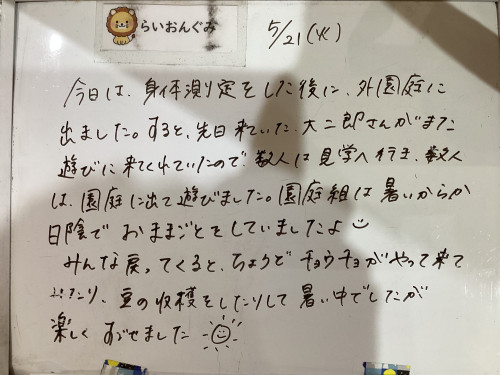 らいおんぐみ
5/21(火)
今日は、身体測定をした後に、外園庭に
出ました。すると、先日来ていた、大二郎さんがまた
遊びに来てくれていたので、数人は見学へ行き、数人
は、園庭に出て遊びました。園庭組は暑いからか
日陰でおままごとをしていましたよ
みんな戻ってくると、ちょうどチョウチョがやって来て
豆の収穫をしたりして暑い中でしたが
楽しくすごせました